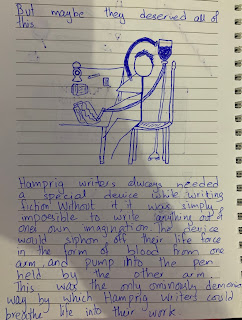 But maybe they deserved all of
this.
Hamprig writers always needed
a special device while writing
fiction. Without it, it was simply
impossible to write anything out of
one's own imagination. The device
would siphon off their life force
in the form of blood from one
arm and pump into the pen
held by the other arm.
This was the only commonly
way by which Hamprig writers could
breathe life into their work.